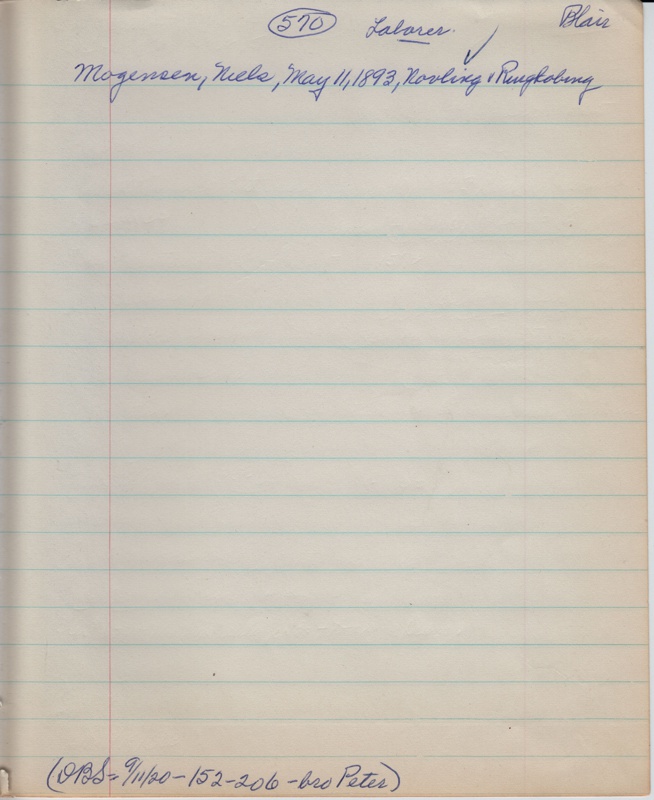 570 Laborer. Blair
Mogensen, Niels, May 11, 1893, Novling, Ringkobing
(DBS= 9/11/20-152-206-bro Peter)